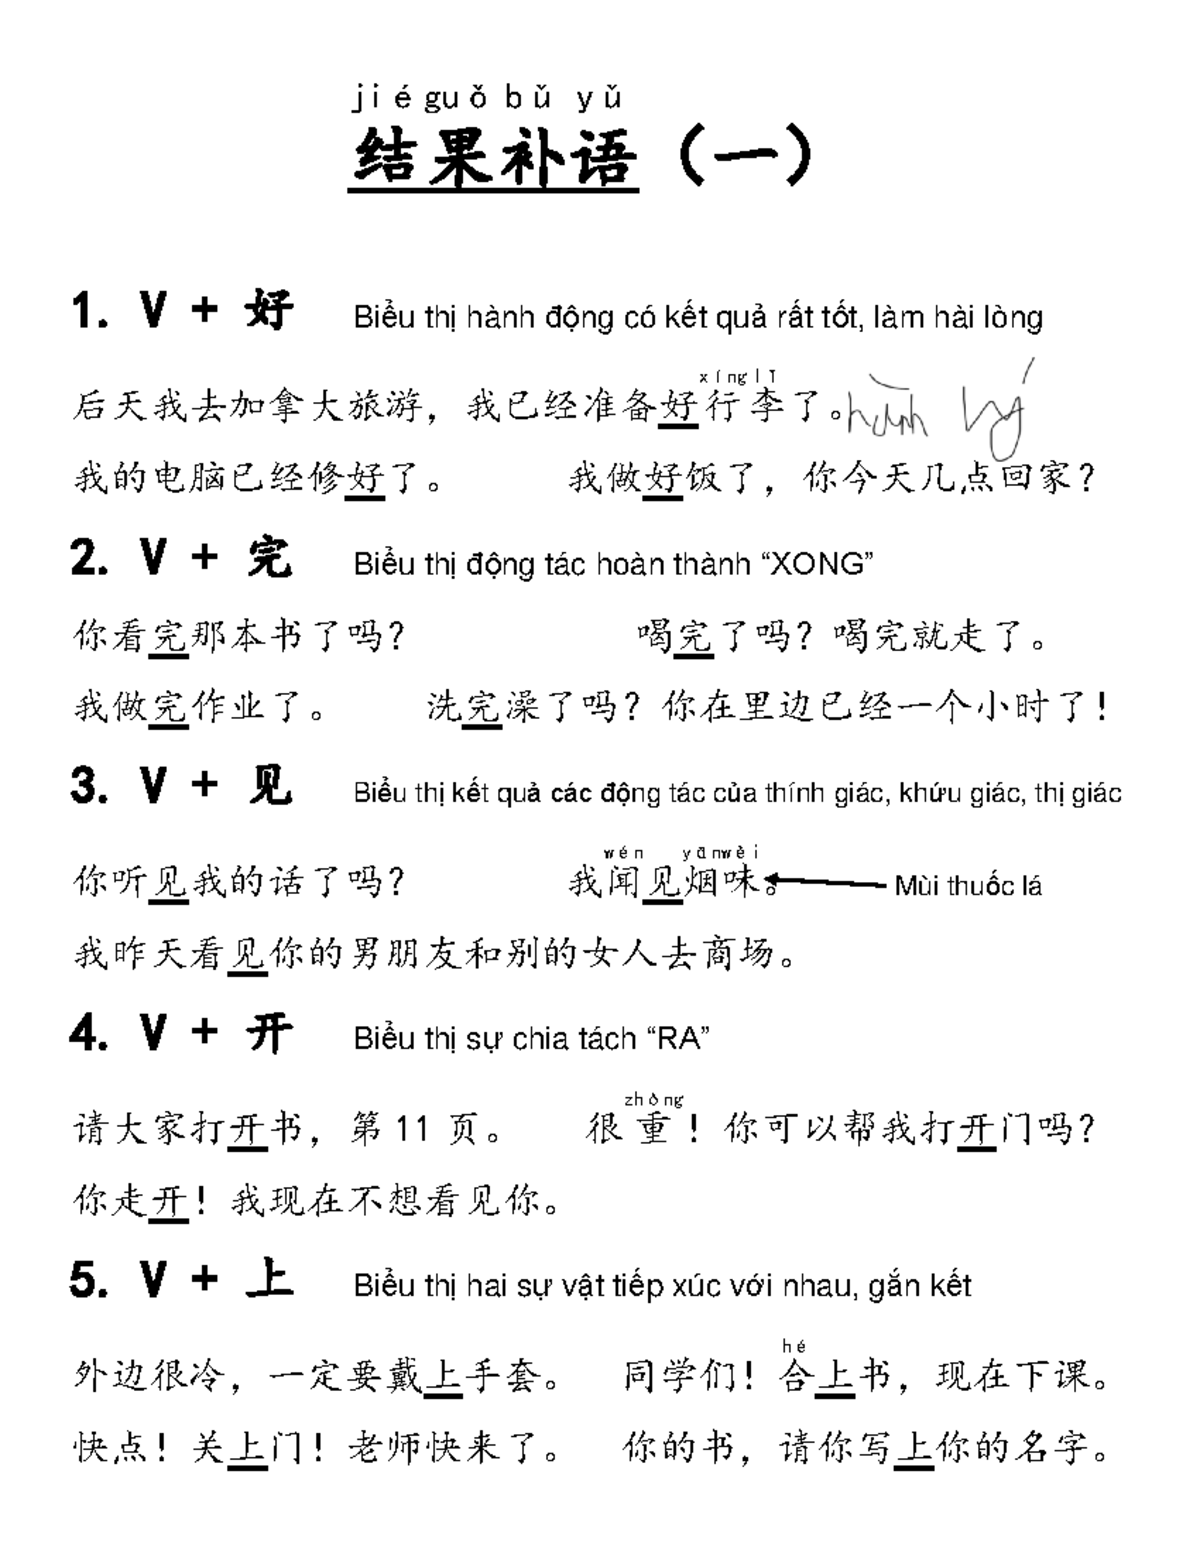 jiéguǒbǔ yǔ
结果补语（一）
1. V + 好 Biểu thị hành động có kết quả rất tốt, làm hài lòng
xínglǐ
后天我去加拿大旅游，我已经准备好行李了。
我的电脑已经修好了。 我做好饭了，你今天几点回家？
2. V + 完 Biểu thị động tác hoàn thành “XONG”
你看完那本书了吗？ 喝完了吗？喝完就走了。
我做完作业了。 洗完澡了吗？你在里边已经一个小时了！
3. V + 见 Biểu thị kết quả các động tác của thính giác, khứu giác, thị giác
wén yānwèi
你听见我的话了吗？ 我闻见烟味。 Mùi thuốc lá
我昨天看见你的男朋友和别的女人去商场。
4. V + 开 Biểu thị sự chia tách “RA”
zhòng
请大家打开书，第 11 页。 很重！你可以帮我打开门吗？
你走开！我现在不想看见你。
5. V + 上 Biểu thị hai sự vật tiếp xúc với nhau, gắn kết
hé
外边很冷，一定要戴上手套。 同学们！合上书，现在下课。
快点！关上门！老师快来了。 你的书，请你写上你的名字。